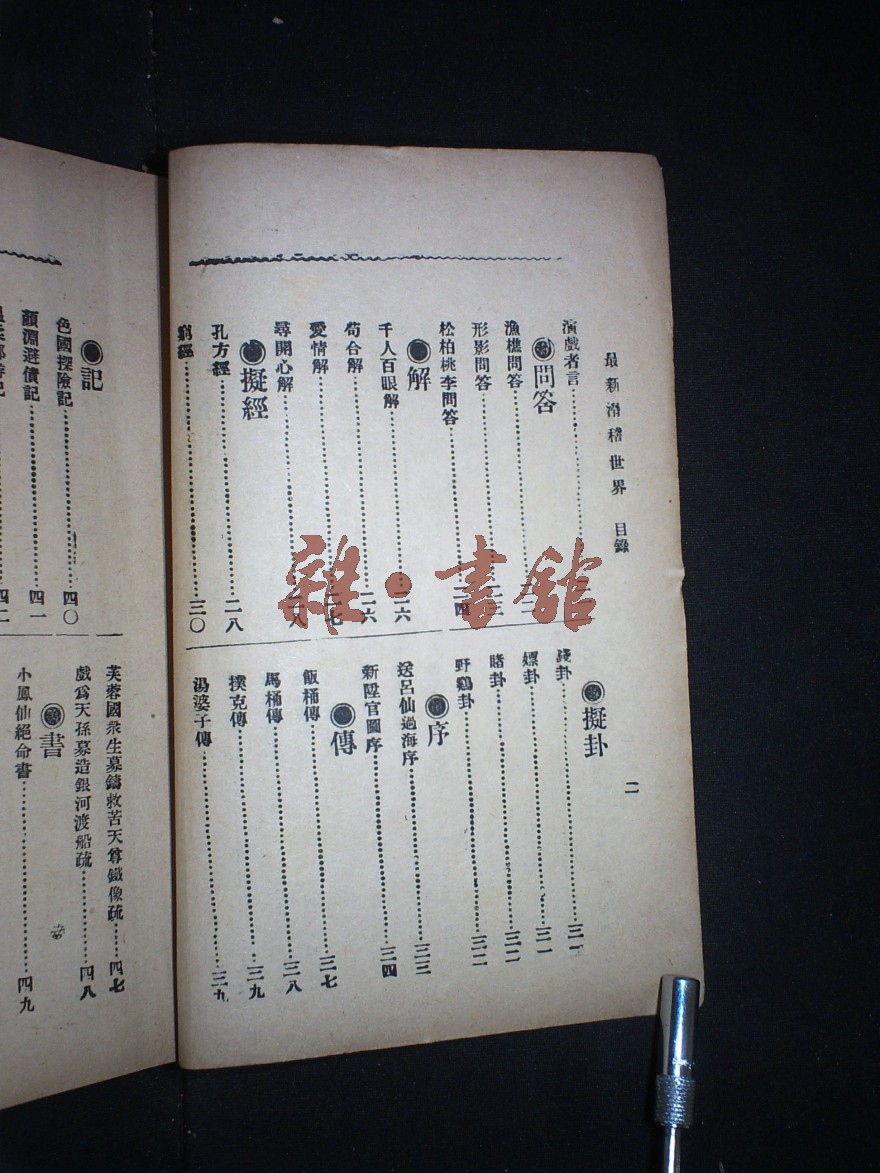 最新滑稽世界 目錄
二
演戲者言
問答
漁樵問答
形影問答
松柏桃李問答 二四
解
千人百眼解 二六
苟合解 二六
愛情解 二七
尋開心解 二八
擬經
孔方經 二八
窮經 三〇
擬卦
錢卦 三一
嫖卦 三一
賭卦 三二
野鷄卦 三二
序
送呂仙過海序 三三
新陞官圖序 三四
傳
飯桶傳 三七
馬桶傳 三八
撲克傳 三九
湯婆子傳 三九
記
色國探險記 四〇
顏淵避債記 四一
芙蓉國衆生募鑄救苦天尊鐵像疏 四七
戲爲天孫募造銀河渡船疏 四八
書
小鳳仙絕命書 四九
雜·書館